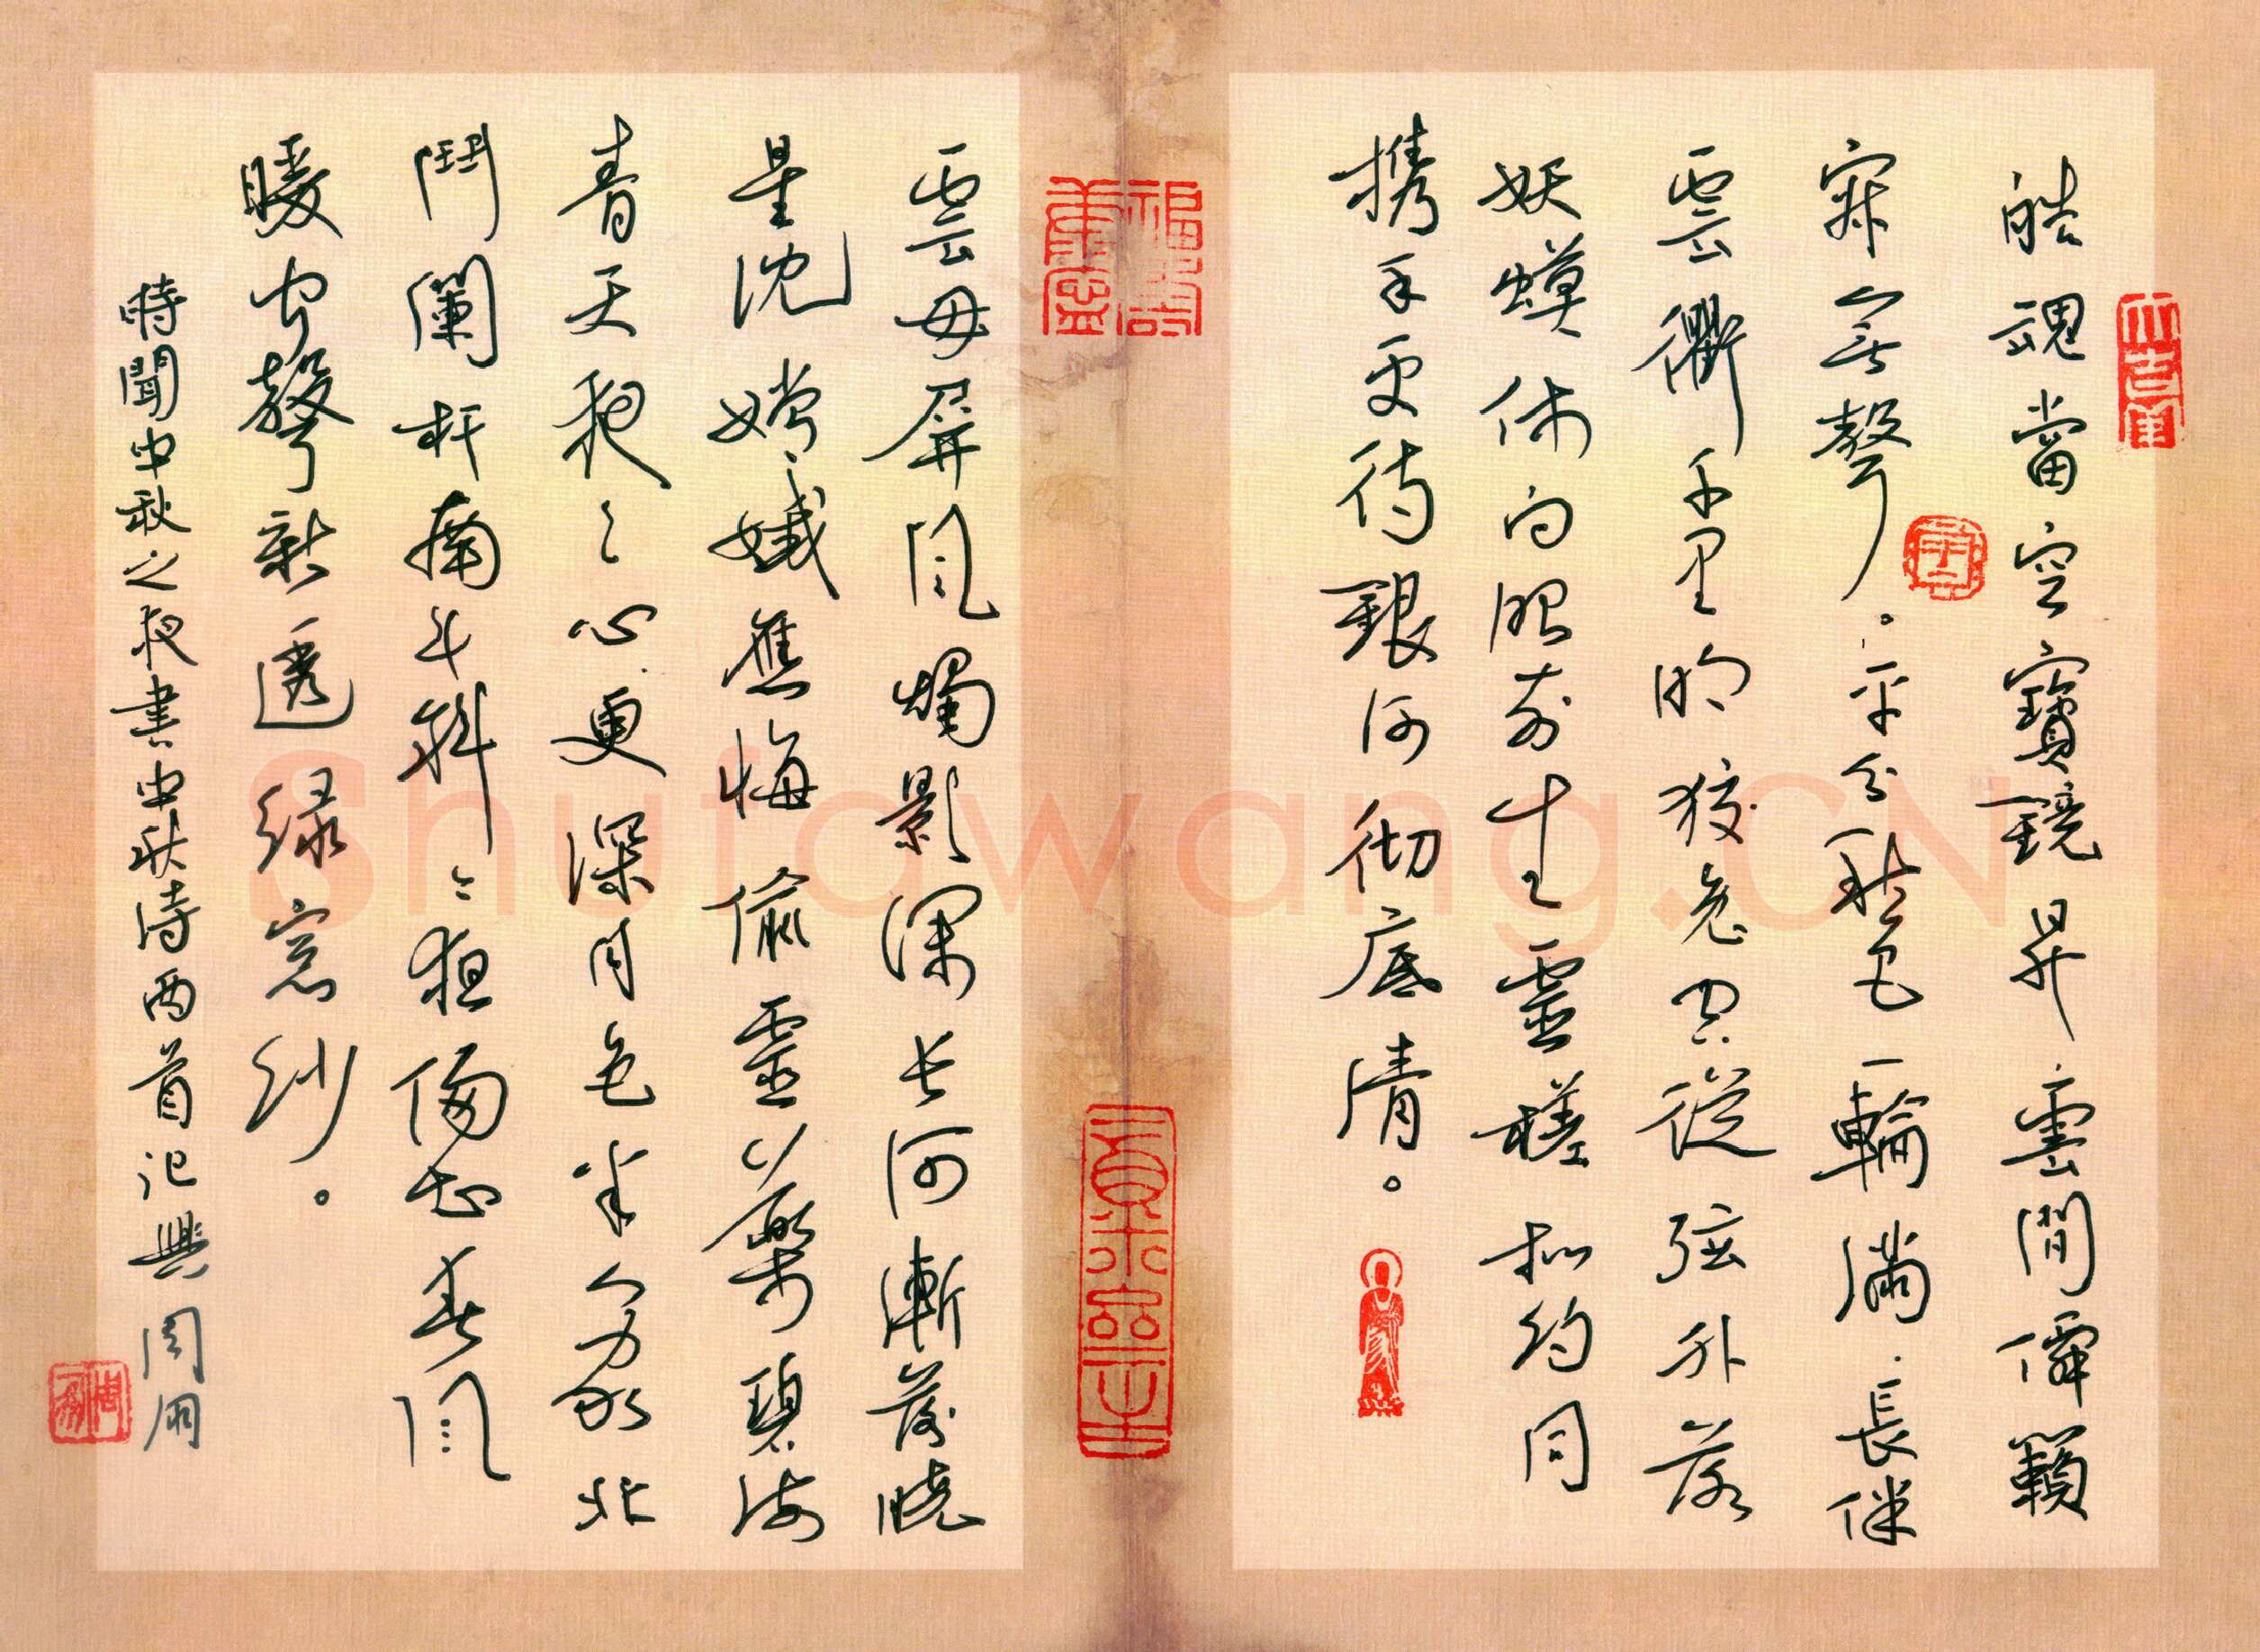 皓魂當空寶鏡昇雲間僊籟
寂無聲。平分秋色一輪滿長伴
雲衢千里明狡兔空從弦外落
妖蟆休向眼前生靈槎拟約同
携手更待銀河彻底清。
雲母屏風燭影深長河漸落曉
星沈嫦娥應悔偷靈藥碧海
青天夜々心更深月色半人家北
鬥闌杆南斗斜今夜偏知春風
暖虫聲新透绿窓紗。
時聞中秋之夜書中秋诗两首记興 周
Shufawang.CN